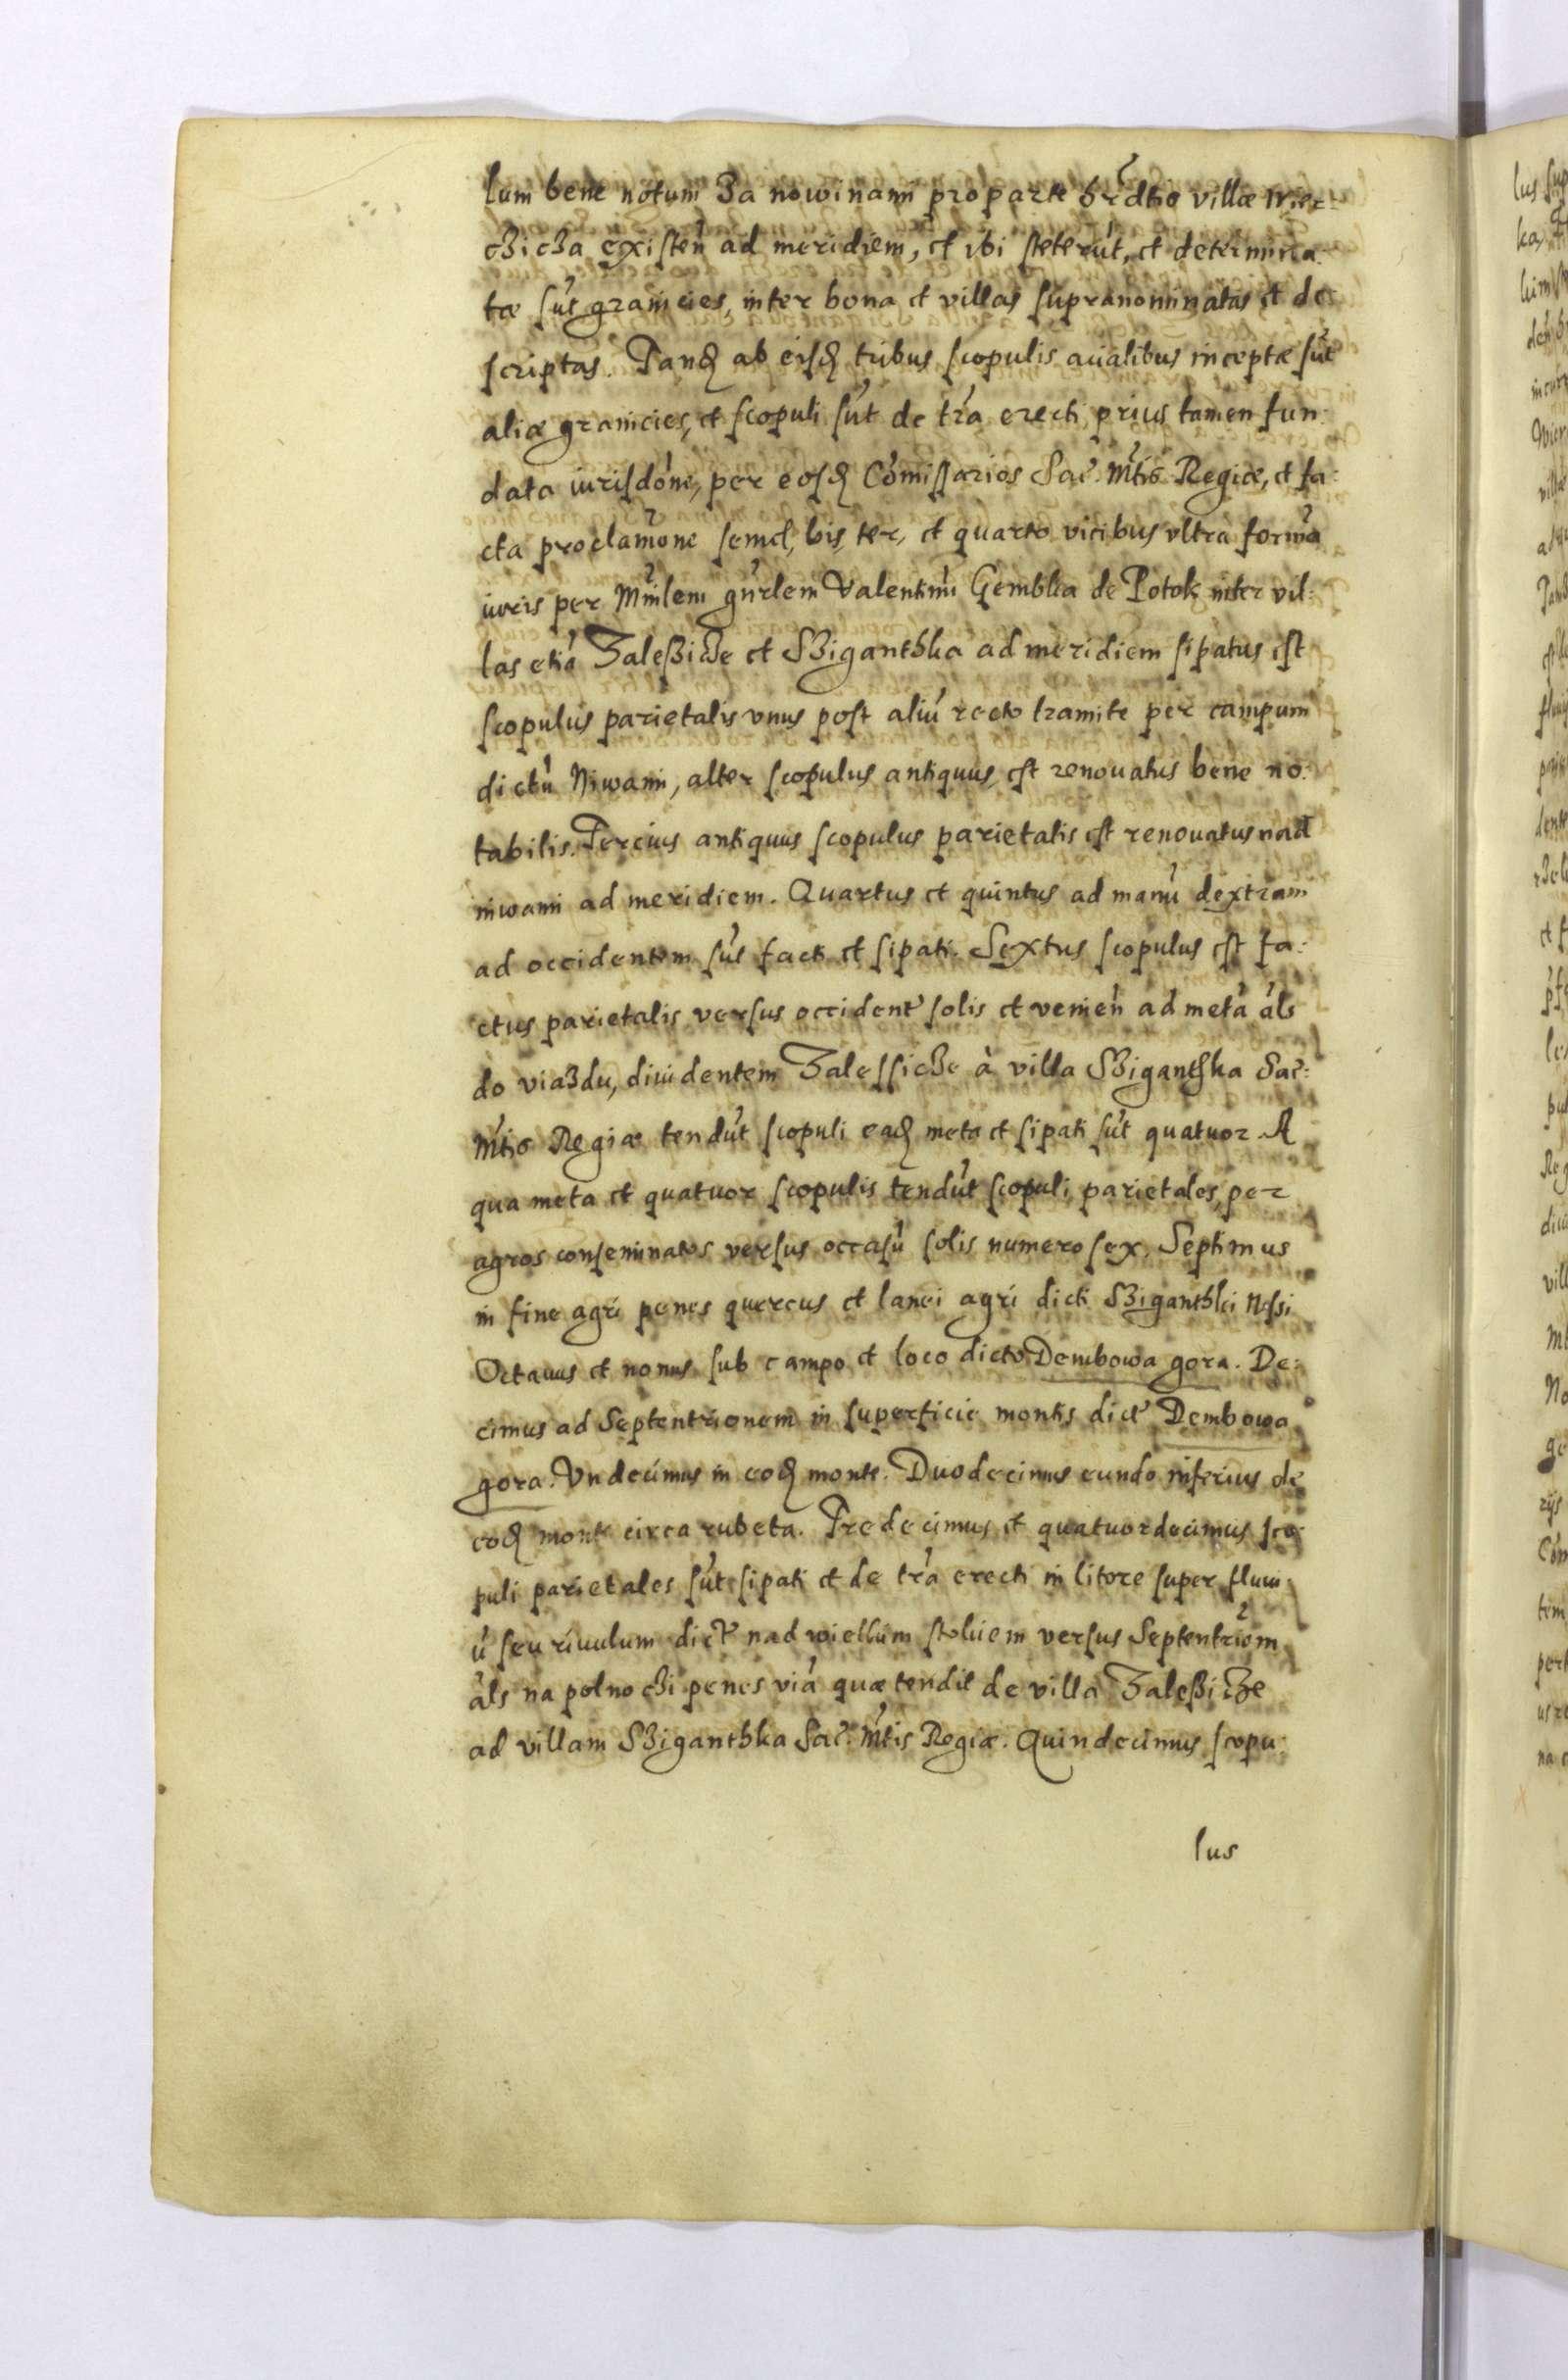 lum bene notum Za nowinami pro parte hrdtis villæ Wier-
zchicza existeń ad meridiem, et ibi steterút, et determina-
tæ sút granicies, inter bona et villas supranominatas et de-
scriptas. Tandȩ ab eisdȩ tribus scopulis acialibus inceptæ sút
aliæ granicies, et scopuli sút de trá erecti, prius tamen fun-
data iurisdóne, per eosdȩ Cómissarios Sac. Mtis Regiæ, et fa-
cta proclamóne semel, bis, ter, et quarto vicibus vltra formá
iuris per Minlem gnrlem Valentinú Gembka de Potok inter vil-
las etiá Zaleßicze et Sziganthka ad meridiem sipatus est
scopulus parietalis vnus post aliú recto tramite per campum
dictú Niwami, alter scopulus antiquus est renouatus bene no-
tabilis. Tercius antiquus scopulus parietalis est renouatus nad
niwami ad meridiem. Quartus et quintus ad manú dextram
ad occidentem sút facti et sipati. Sextus scopulus est fa-
ctus parietalis versus occident solis et venień ad metá áls
do viazdu, diuidentem Zalessicze à villa Sziganthka Sac:
Mtis Regiæ tendút scopuli eadȩ meta et sipati sút quatuor. A
qua meta et quatuor scopulis tendút scopuli parietales per
agros conseminatos versus occasú solis numero sex. Septimus
in fine agri penes quercus et lanei agri dicti Sziganthki
Octauus et nonus sub campo et loco dicto Dembowa gora. De-
cimus ad Septentrionem in superficie montis dict Dembowa
gora. Vndecimus in eodȩ monte. Duodecimus eundo inferius de
eodȩ monte circa rubeta. Tredecimus et quatuordecimus sco-
puli parietales sút sipati et de trá erecti in litore super fluui-
ú seu riuulum dict nad wielkim stokiem versus Septentrióm
áls na polnoczi penes viá quæ tendit de villa Zaleßicze
ad villam Sziganthka Sac. Mtis Regiæ. Quindecimus scopu-
lus